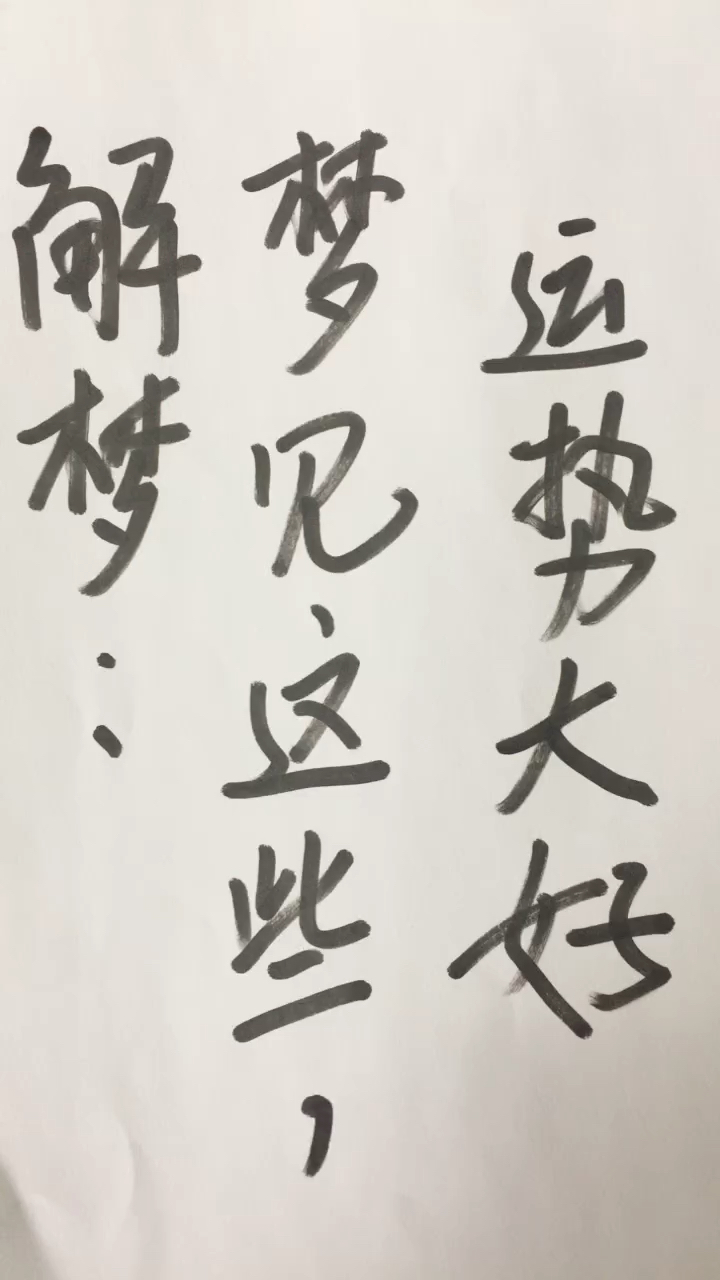 解梦：
梦见这些，
运势大好